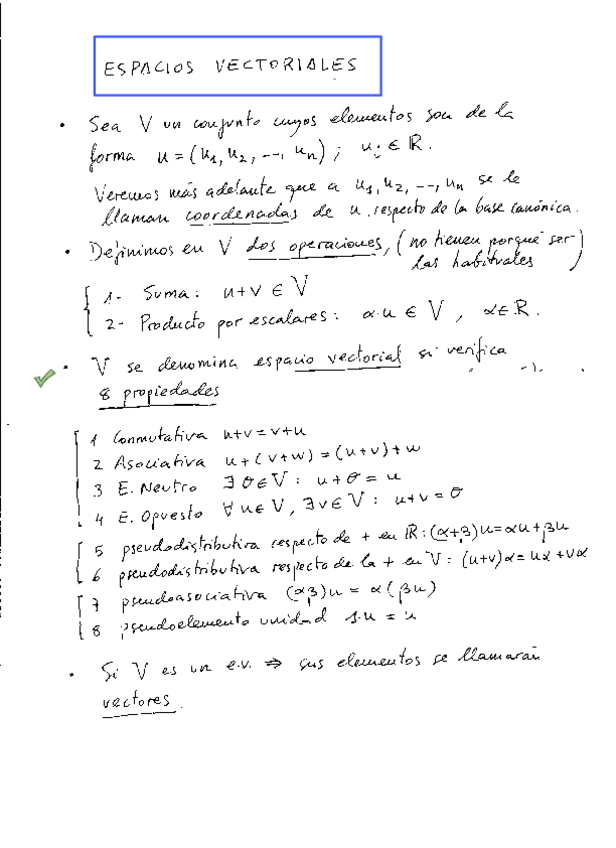 ESPACIOS VECTORIALES
• Sea V un conjunto cuyos elementos son de la
forma u = (u₁, u₂, --, uₙ) ; uᵢ ∈ ℝ.
Veremos más adelante que a u₁, u₂, --, uₙ se le
llaman coordenadas de u respecto de la base canónica.
• Definimos en V dos operaciones, (no tienen porqué ser
las habituales)
1- Suma: u+v ∈ V
2- Producto por escalares: α·u ∈ V, α∈ℝ.
• V se denomina espacio vectorial si verifica
8 propiedades
1 Conmutativa u+v = v+u
2 Asociativa u+(v+w) = (u+v)+w
3 E. Neutro ∃ θ∈V : u+θ = u
4 E. Opuesto ∀ u∈V, ∃ v∈V : u+v = θ
5 pseudodistributiva respecto de + en ℝ: (α+β)u = αu+βu
6 pseudodistributiva respecto de la + en V: (u+v)α = uα+vα
7 pseudoasociativa (αβ)u = α(βu)
8 pseudoelemento unidad 1·u = u
• Si V es un e.v. ⇒ sus elementos se llamarán
vectores.